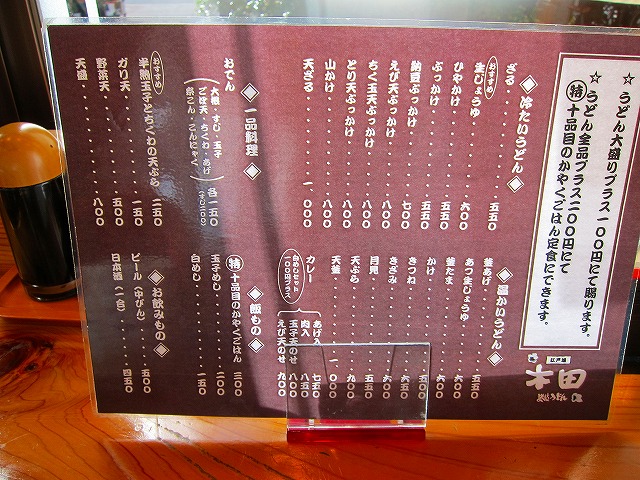 ☆うどん大盛りプラス一〇〇円にて賜ります。
☆うどん全品プラス二〇〇円にて
㊕十品目のかやくごはん定食にできます。
江戸堀
木田
◈冷たいうどん◈
ざる・・・五五〇
おすすめ
生じょうゆ・・・六〇〇
ひやかけ・・・五五〇
ぶっかけ・・・五五〇
納豆ぶっかけ・・・七〇〇
えび天ぶっかけ・・・八〇〇
ちく玉天ぶっかけ・・・八〇〇
とり天ぶっかけ・・・八〇〇
山かけ・・・八〇〇
天ざる・・・一〇〇〇
◈温かいうどん◈
釜あげ・・・五五〇
あつ生じょうゆ・・・六〇〇
釜たま・・・六〇〇
かけ・・・五〇〇
きつね・・・六〇〇
きざみ・・・六〇〇
月見・・・五五〇
天ぷら・・・九〇〇
天釜・・・一〇〇〇
カレー
あげ入 七五〇
肉入 八五〇
玉子天のせ 八〇〇
えび天のせ 九〇〇
白めしセット
一〇〇円プラス
◈一品料理◈
おでん
大根・すじ・玉子
ごぼ天・ちくわ・あげ
糸こん・こんにゃく
各一五〇
おすすめ
半熟玉子とちくわの天ぷら・・・二五〇
ガリ天・・・一五〇
野菜天・・・五〇〇
天盛・・・八〇〇
◈飯もの◈
㊕十品目のかやくごはん・・・三〇〇
玉子めし・・・三〇〇
白めし・・・一五〇
◈お飲みもの◈
ビール(中びん)・・・五〇〇
日本酒(一合)・・・四五〇